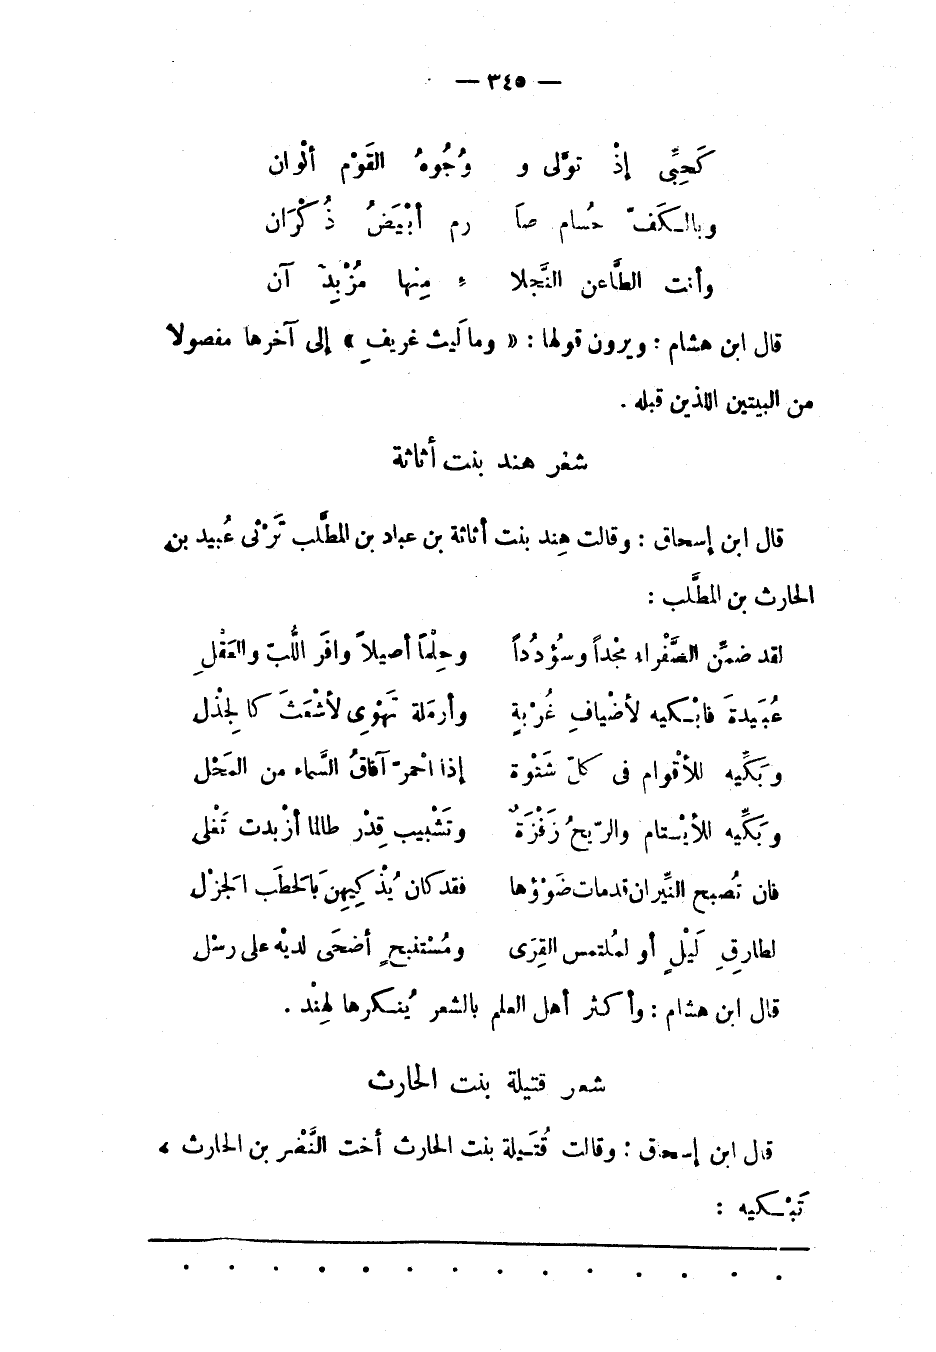 — ٣٤٥ —
كَحِبِّى إِذْ تولَّى و وُجُوهُ القَوْم ألْوان
وبالـكَفّ حُسام صاَ رم أبْيَضُ ذُكْرَان
وأنت الطَّاعن النَّجلا ء مِنها مُزْبِدٌ آن
قال ابن هشام : ويرون قولها : « وما لَيث غريفِ » إلى آخرها مفصولا
من البيتين اللذين قبله .
شغر هند بنت أثاثة
قال ابن إسحاق : وقالت هِند بنت أثاثة بن عباد بن المطَّلب تَرْثى عُبيد بن
الحارث بن المطَّلب :
لقد ضمِّن الصَّفْراء مجْداً وسُؤدُداً وحِلْماً أصيلاً وافَر اللُّبّ والعَقْلِ
عُبَيدةَ فابْـكيه لأضْيافِ غُرْبةٍ وأرمَلة تَهْوِى لأشْعَثَ كالجِذْل
وبَكِّيه للأقْوام فى كلّ شَتْوة إذا احْمرّ آفاقُ السَّماء من المَحْل
وبَكِّيه للأيْـتام والرّيحُ زَفْزَةٌ وتَشْبيب قِدْر طالما أزْبدت تَغْلى
فان تُصبح النِّيران قدمات ضَوْؤها فقد كان يُذْكِيهِنّ بالَحطَب الَجزْل
لطارِقِ لَيْلٍ أو لمُلتمس القِرَى ومُسْتنبحٍ أضحَى لديْه على رسْل
قال ابن هشام : وأكثر أهل العلم بالشعر يُنـكرها لِهنْد .
شعر قتيلة بنت الحارث
قال ابن إسحاق : وقالت قُتَيلة بنت الحارث أخت النَّضْر بن الحارث ،
تَبْـكيه :